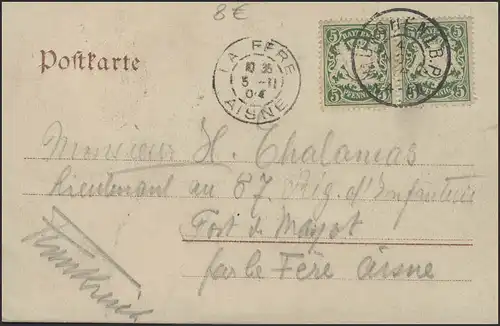 8€
Postkarte
LA FERE
10 35
5 - 11
04
AISNE
BAYERN
5 5
PFENNIG
BAYERN
5 5
PFENNIG
Monsieur H. Chalamas
Lieutenant au 87 Rég. d'Infanterie
Fort de Mayot
par la Fère Aisne
Frankreich